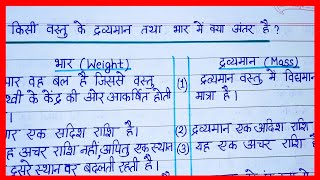 किसी वस्तु के द्रव्यमान तथा भार में क्या अंतर है ?
भार (Weight)
भार वह बल है जिससे वस्तु
पृथ्वी के केंद्र की ओर आकर्षित होती
है।
भार एक सदिश राशि है।
यह अचर राशि नहीं, अपितु एक स्थान
दूसरे स्थान पर बदलती रहती है।
द्रव्यमान (Mass)
(1) द्रव्यमान वस्तु में विद्यमान
मात्रा है।
(2) द्रव्यमान एक अदिश राशि
(3) यह एक अचर राशि है